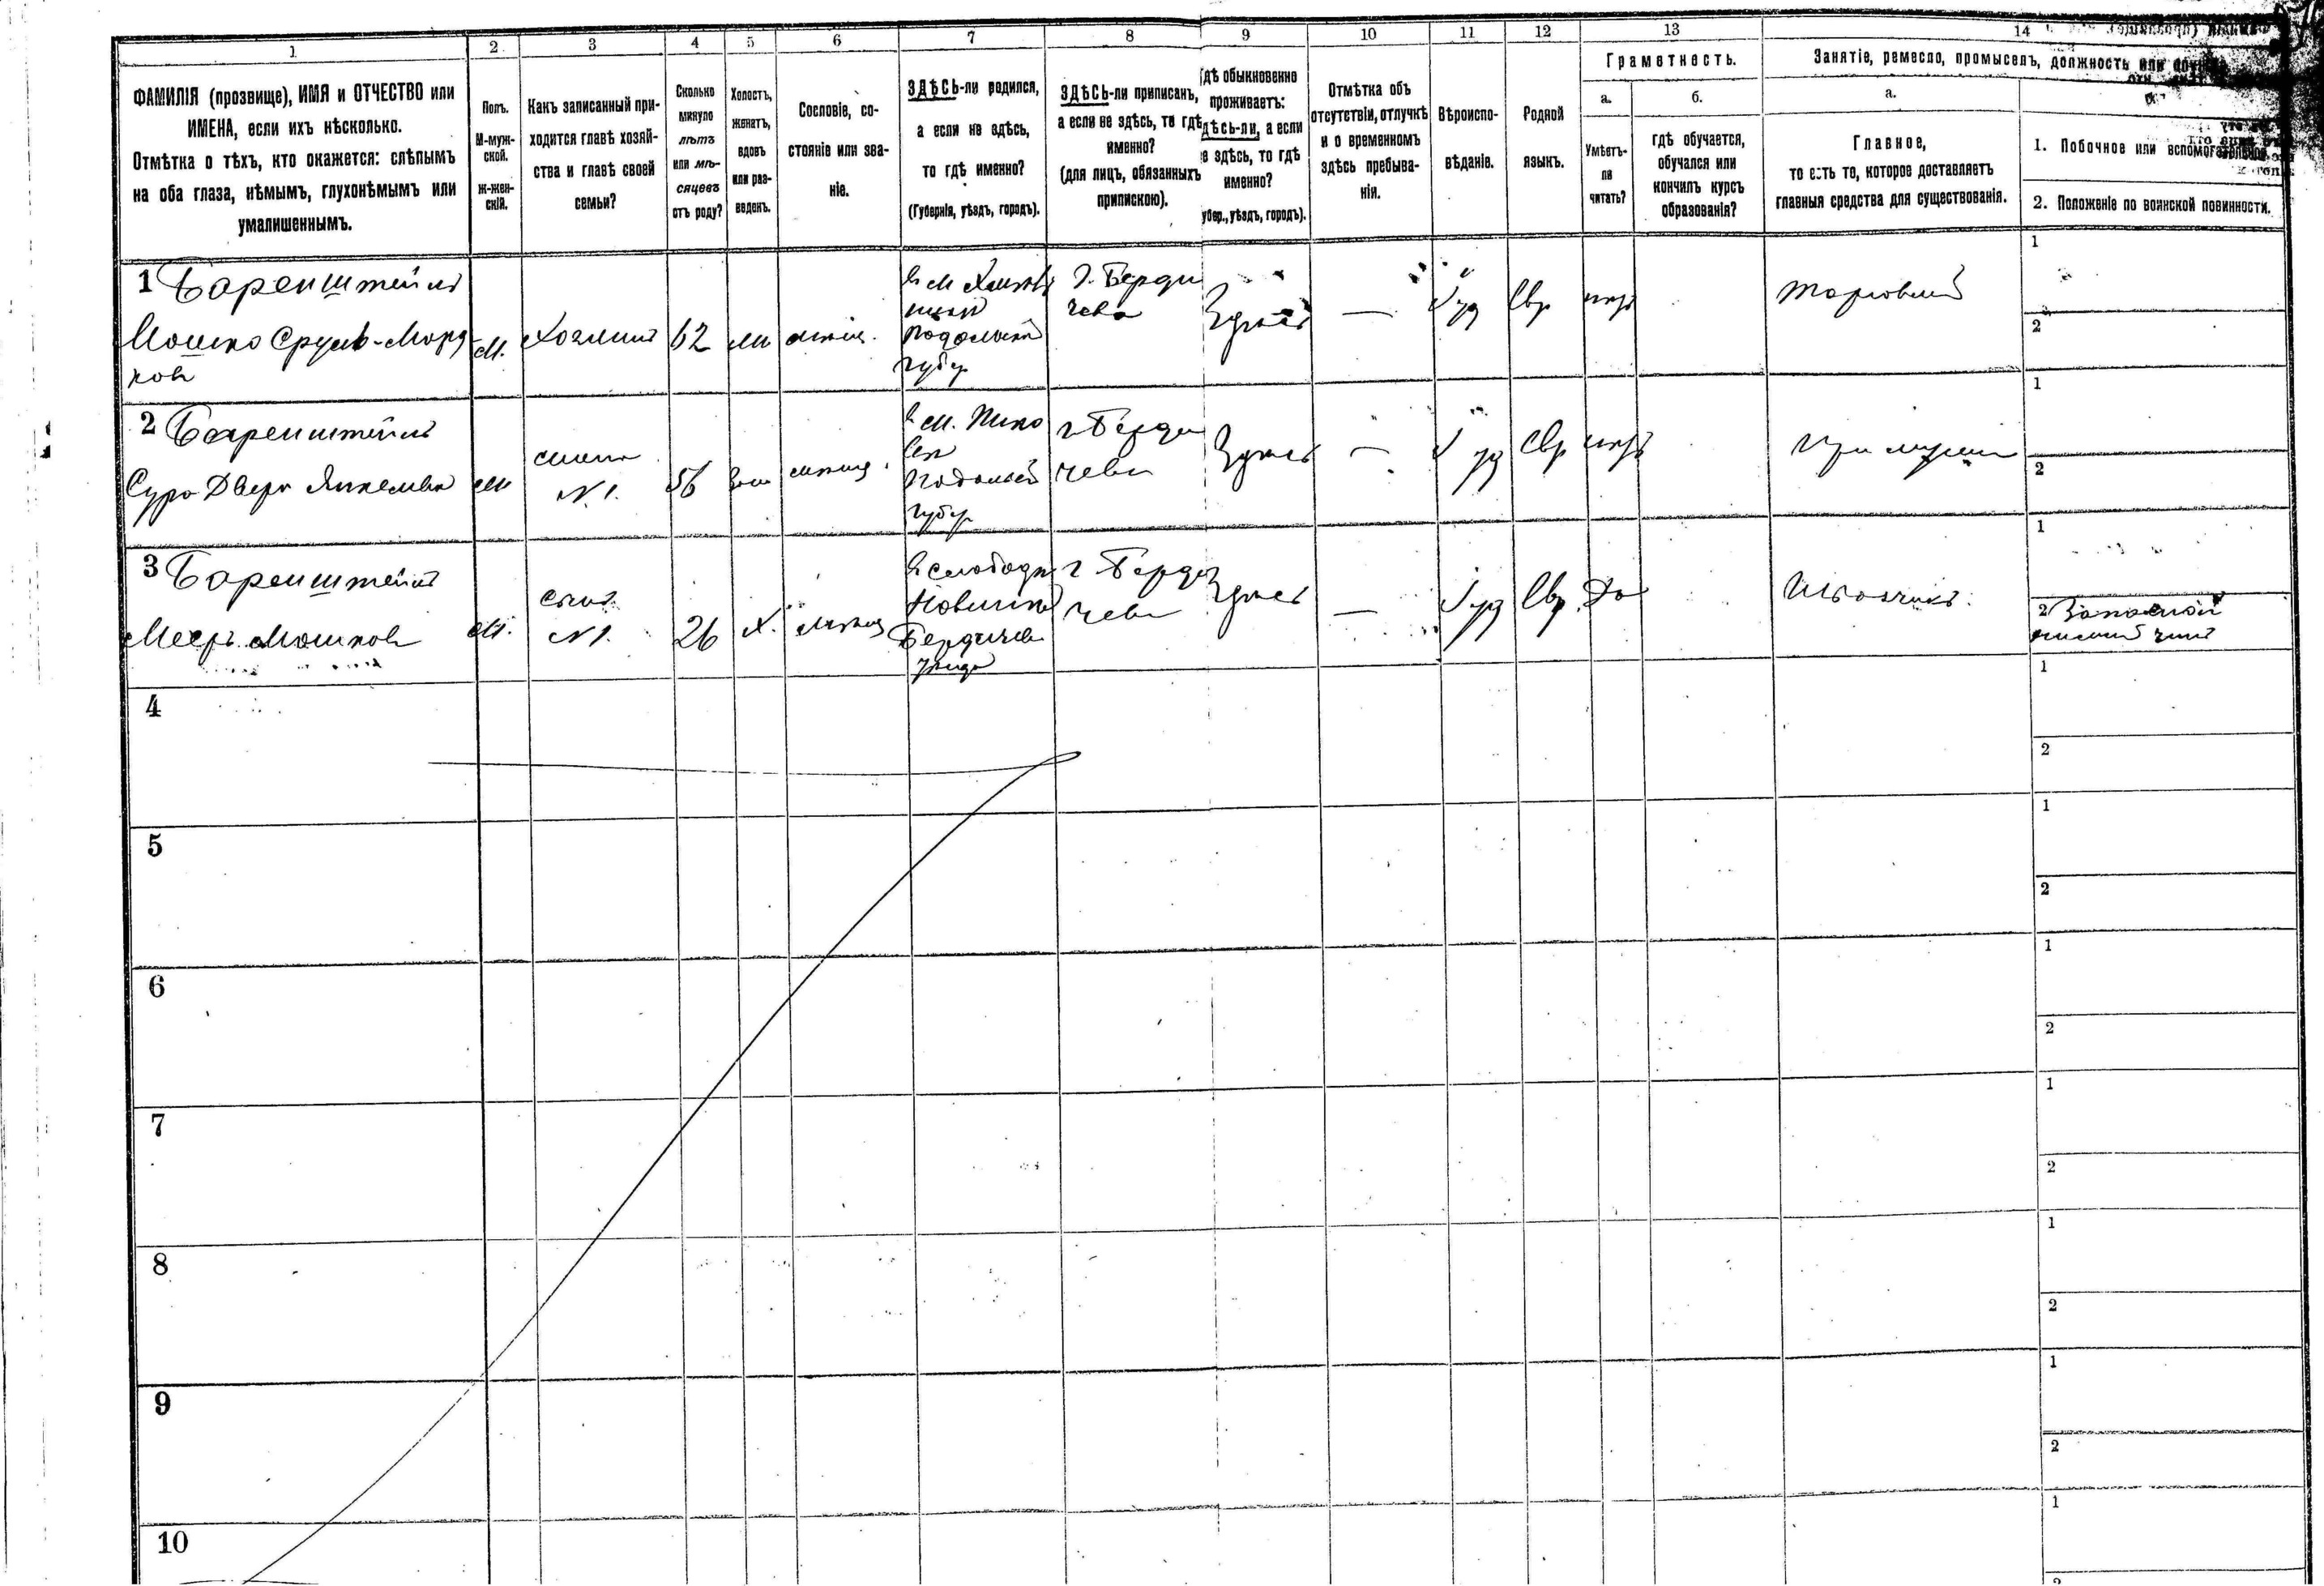 1 2 3 4 5 6 7 8 9 10 11 12 13 14
ФАМИЛІЯ (прозвище), ИМЯ и ОТЧЕСТВО или
ИМЕНА, если ихъ нѣсколько.
Отмѣтка о тѣхъ, кто окажется: слѣпымъ
на оба глаза, нѣмымъ, глухонѣмымъ или
умалишеннымъ.
Полъ.
М-муж-
ской.
Ж-жен-
скій.
Какъ записанный при-
ходится главѣ хозяй-
ства и главѣ своей
семьи?
Сколько
минуло
лѣтъ
или мѣ-
сяцевъ
отъ роду?
Холостъ,
женатъ,
вдовъ
или раз-
веденъ.
Сословіе, со-
стояніе или зва-
ніе.
ЗДѢСЬ-ли родился,
а если не здѣсь,
то гдѣ именно?
(Губернія, уѣздъ, городъ).
ЗДѢСЬ-ли приписанъ,
а если не здѣсь, то гдѣ
именно?
(для лицъ, обязанныхъ
припискою).
гдѣ обыкновенно
проживаетъ:
дѣсь-ли, а если
е здѣсь, то гдѣ
именно?
убер., уѣздъ, городъ).
Отмѣтка объ
отсутствіи, отлучкѣ
и о временномъ
здѣсь пребыва-
ніи.
Вѣроиспо-
вѣданіе.
Родной
языкъ.
Грамотность.
а.
Умѣетъ-
ли
читать?
б.
гдѣ обучается,
обучался или
кончилъ курсъ
образованія?
Занятіе, ремесло, промыселъ, должность или
а.
Главное,
то есть то, которое доставляетъ
главныя средства для существованія.
1. Побочное или вспомогательное
2. Положеніе по воинской повинности.
1 Баренштейнъ
Мошко Сруль-Морд
ковъ
М.
Хозяинъ
62
мѣщ.
Подольской
губер
г. Берди
чева
Здѣсь
—
Іуд
Евр
нѣтъ
Торговый
1
2
2 Баренштейнъ
Сура Двера Янкелева
жена
№ 1.
56
Зам
мѣщ.
в м. Пико
въ
Подольск
губер
г. Берди
чева
Здѣсь
—
Іуд
Евр
нѣтъ
При мужѣ
1
2
3 Баренштейнъ
Мееръ Мошковъ
М.
сынъ
№ 1.
26
Х.
мѣщ
в слободы
Бердичев
уѣзда
г. Берди
чева
Здѣсь
—
Іуд
Евр
Да
Извозчикъ.
1
2 Запасной
нижній чинъ
4
1
2
5
1
2
6
1
2
7
1
2
8
1
2
9
1
2
10
1
2